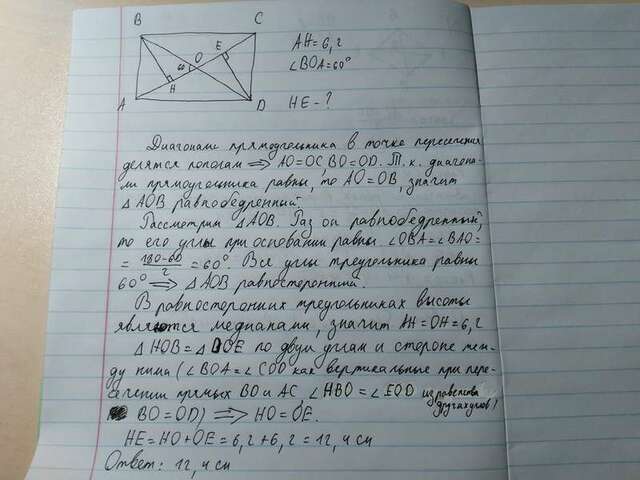 B
C
AH=6,2
∠BOA=60°
O
E
60
H
A
D
HE-?
Диагонали прямоугольника в точке пересечения
делятся пополам ⇒ AO=OC BO=OD. Т.к. диагона-
ли прямоугольника равны, то AO=OB, значит
△AOB равнобедренный.
Рассмотрим △AOB. Раз он равнобедренный,
то его углы при основании равны. ∠OBA=∠BAO=
= 180-60 / 2 = 60°. Все углы треугольника равны
60° ⇒ △AOB равносторонний.
В равносторонних треугольниках высоты
являются медианами, значит AH=OH=6,2
△HOB=△DOE по двум углам и стороне меж-
ду ними (∠BOA=∠COD как вертикальные при пере-
сечении прямых BO и AC, ∠HBO=∠EOD из равенства
других углов,
BO=OD) ⇒ HO=OE.
HE=HO+OE=6,2+6,2=12,4 см
Ответ: 12,4 см